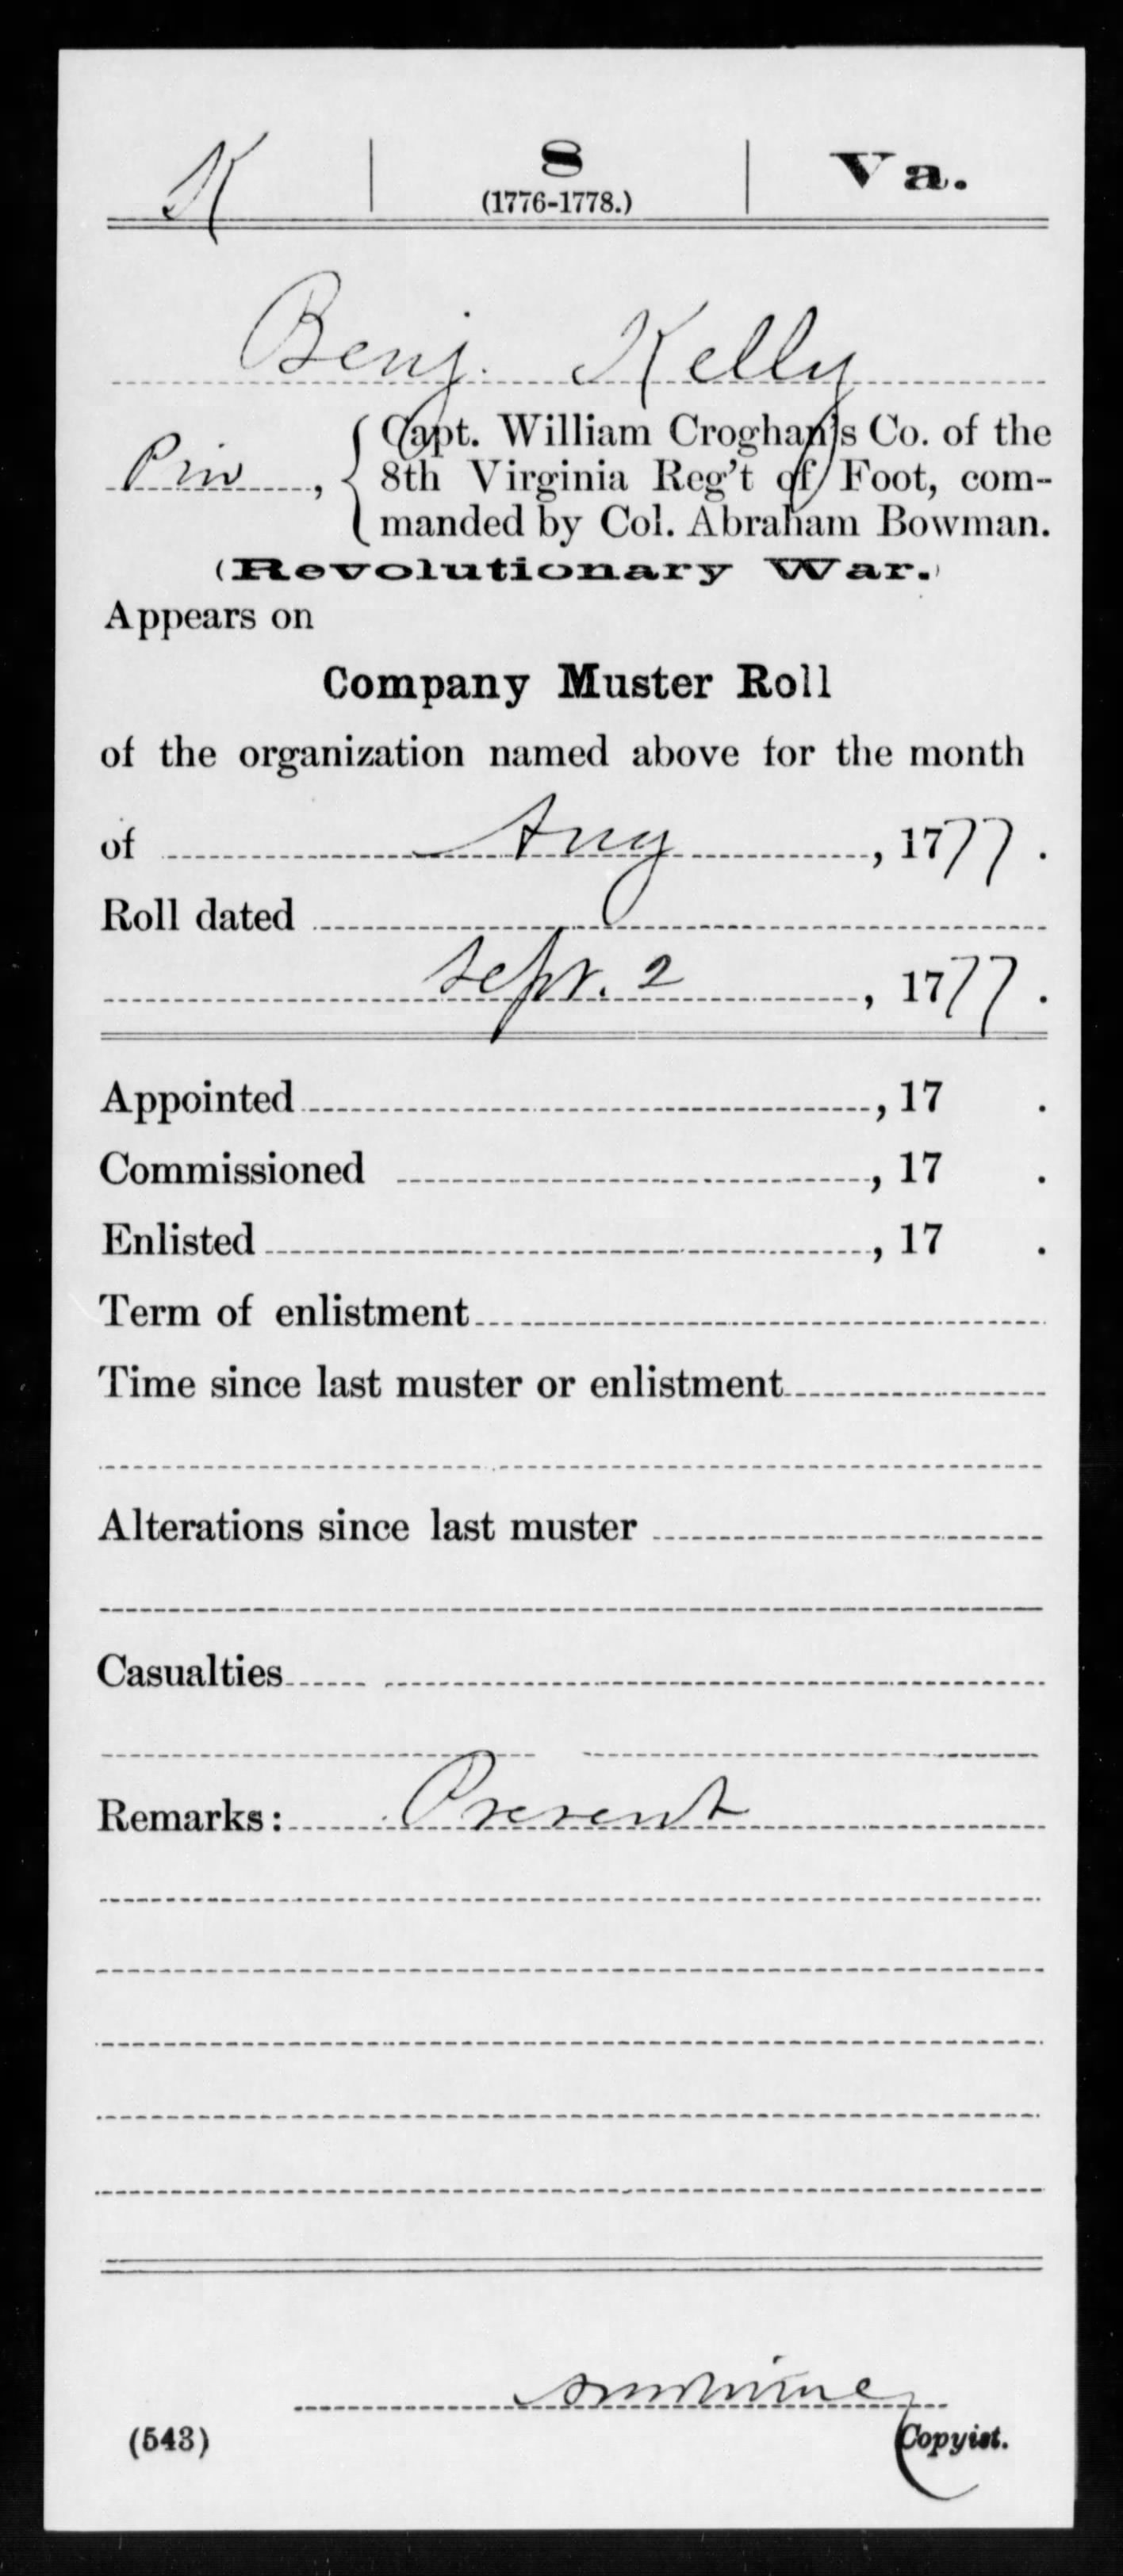 K 8 Va.
(1776-1778.)
Benj. Kelly
Priv, { Capt. William Croghan's Co. of the
8th Virginia Reg't of Foot, com-
manded by Col. Abraham Bowman.
(Revolutionary War.)
Appears on
Company Muster Roll
of the organization named above for the month
of Aug, 1777.
Roll dated
Sept. 2, 1777.
Appointed , 17 .
Commissioned , 17 .
Enlisted , 17 .
Term of enlistment
Time since last muster or enlistment
Alterations since last muster
Casualties
Remarks: Present
(543) Copyist.